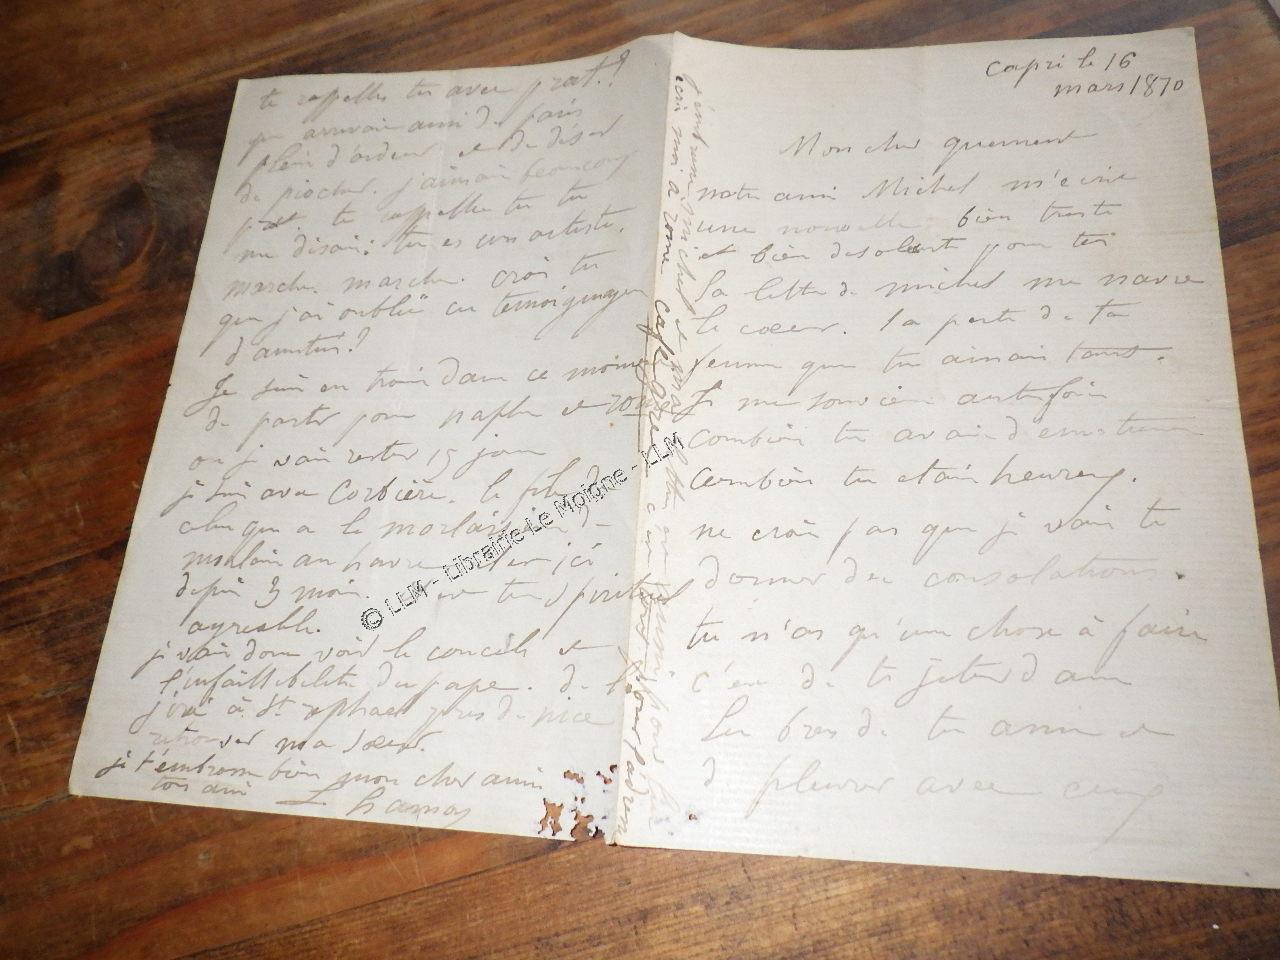 Capri le 16
mars 1870
Mon cher quement
notre ami Michel m'ecrit
une nouvelle bien triste
et bien desolant pour toi
la lettre de michel me navre
le coeur. la perte de ta
femme que tu aimais tant.
Je me souviens autrefois
combien tu avais d'emotion
combien tu etais heureux.
ne crois pas que je vais te
donner des consolations.
tu n'as qu'une chose à faire
c'est de te jeter dans
les bras de tes amis et
de pleurer avec eux
te rappelles tu avec prat.?
qui arrivait aussi de paris
plein d'ardeur et de désir
de piocher. j'aimais beaucoup
prat. te rappelles tu tu
me disais: tu es un artiste.
marche. marche. crois tu
que j'ai oublié ces temoignages
d'amitié.?
Je suis en train dans ce moment
de partir pour naples et rome
où je vais rester 15 jours
je suis avec Corbière. le fils de
celui qui a le morlaisien de
morlaix au havre
depuis 3 mois. tres spirituel
agreable.
je vais donc voir le concile et
l'infaillibilité du pape. de là
j'irai à St. raphael près de nice
retrouver ma soeur.
je t'embrasse bien mon cher ami
ton ami L hamon
écris moi a rome café greco
© LLM - Librairie Le Moigne - LLM